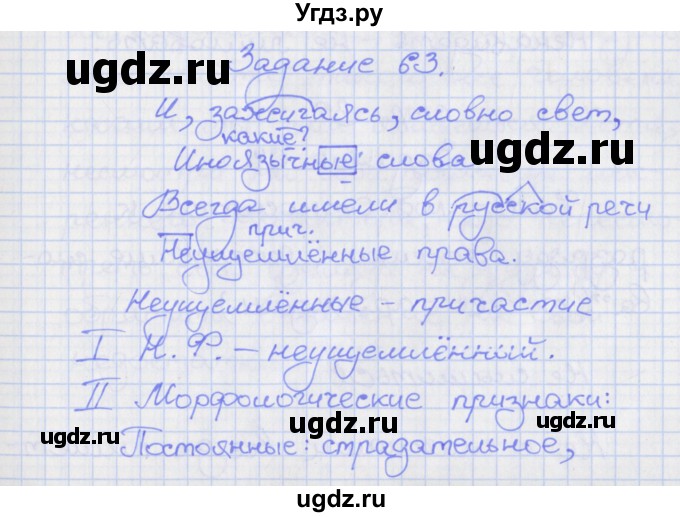 Угдз.ру
Задание 63.
И, зажигаясь, словно свет,
какие?
Иноязычные слова
Всегда имели в русской речи
прич.
Неущемлённые права.
Неущемлённые - причастие
I Н.Ф. - неущемлённый.
II Морфологические признаки:
Постоянные: страдательное,
ugdz.ru
ugdz.ru
ugdz.ru
ugdz.ru
ugdz.ru
ugdz.ru
ugdz.ru
ugdz.ru
ugdz.ru
ugdz.ru